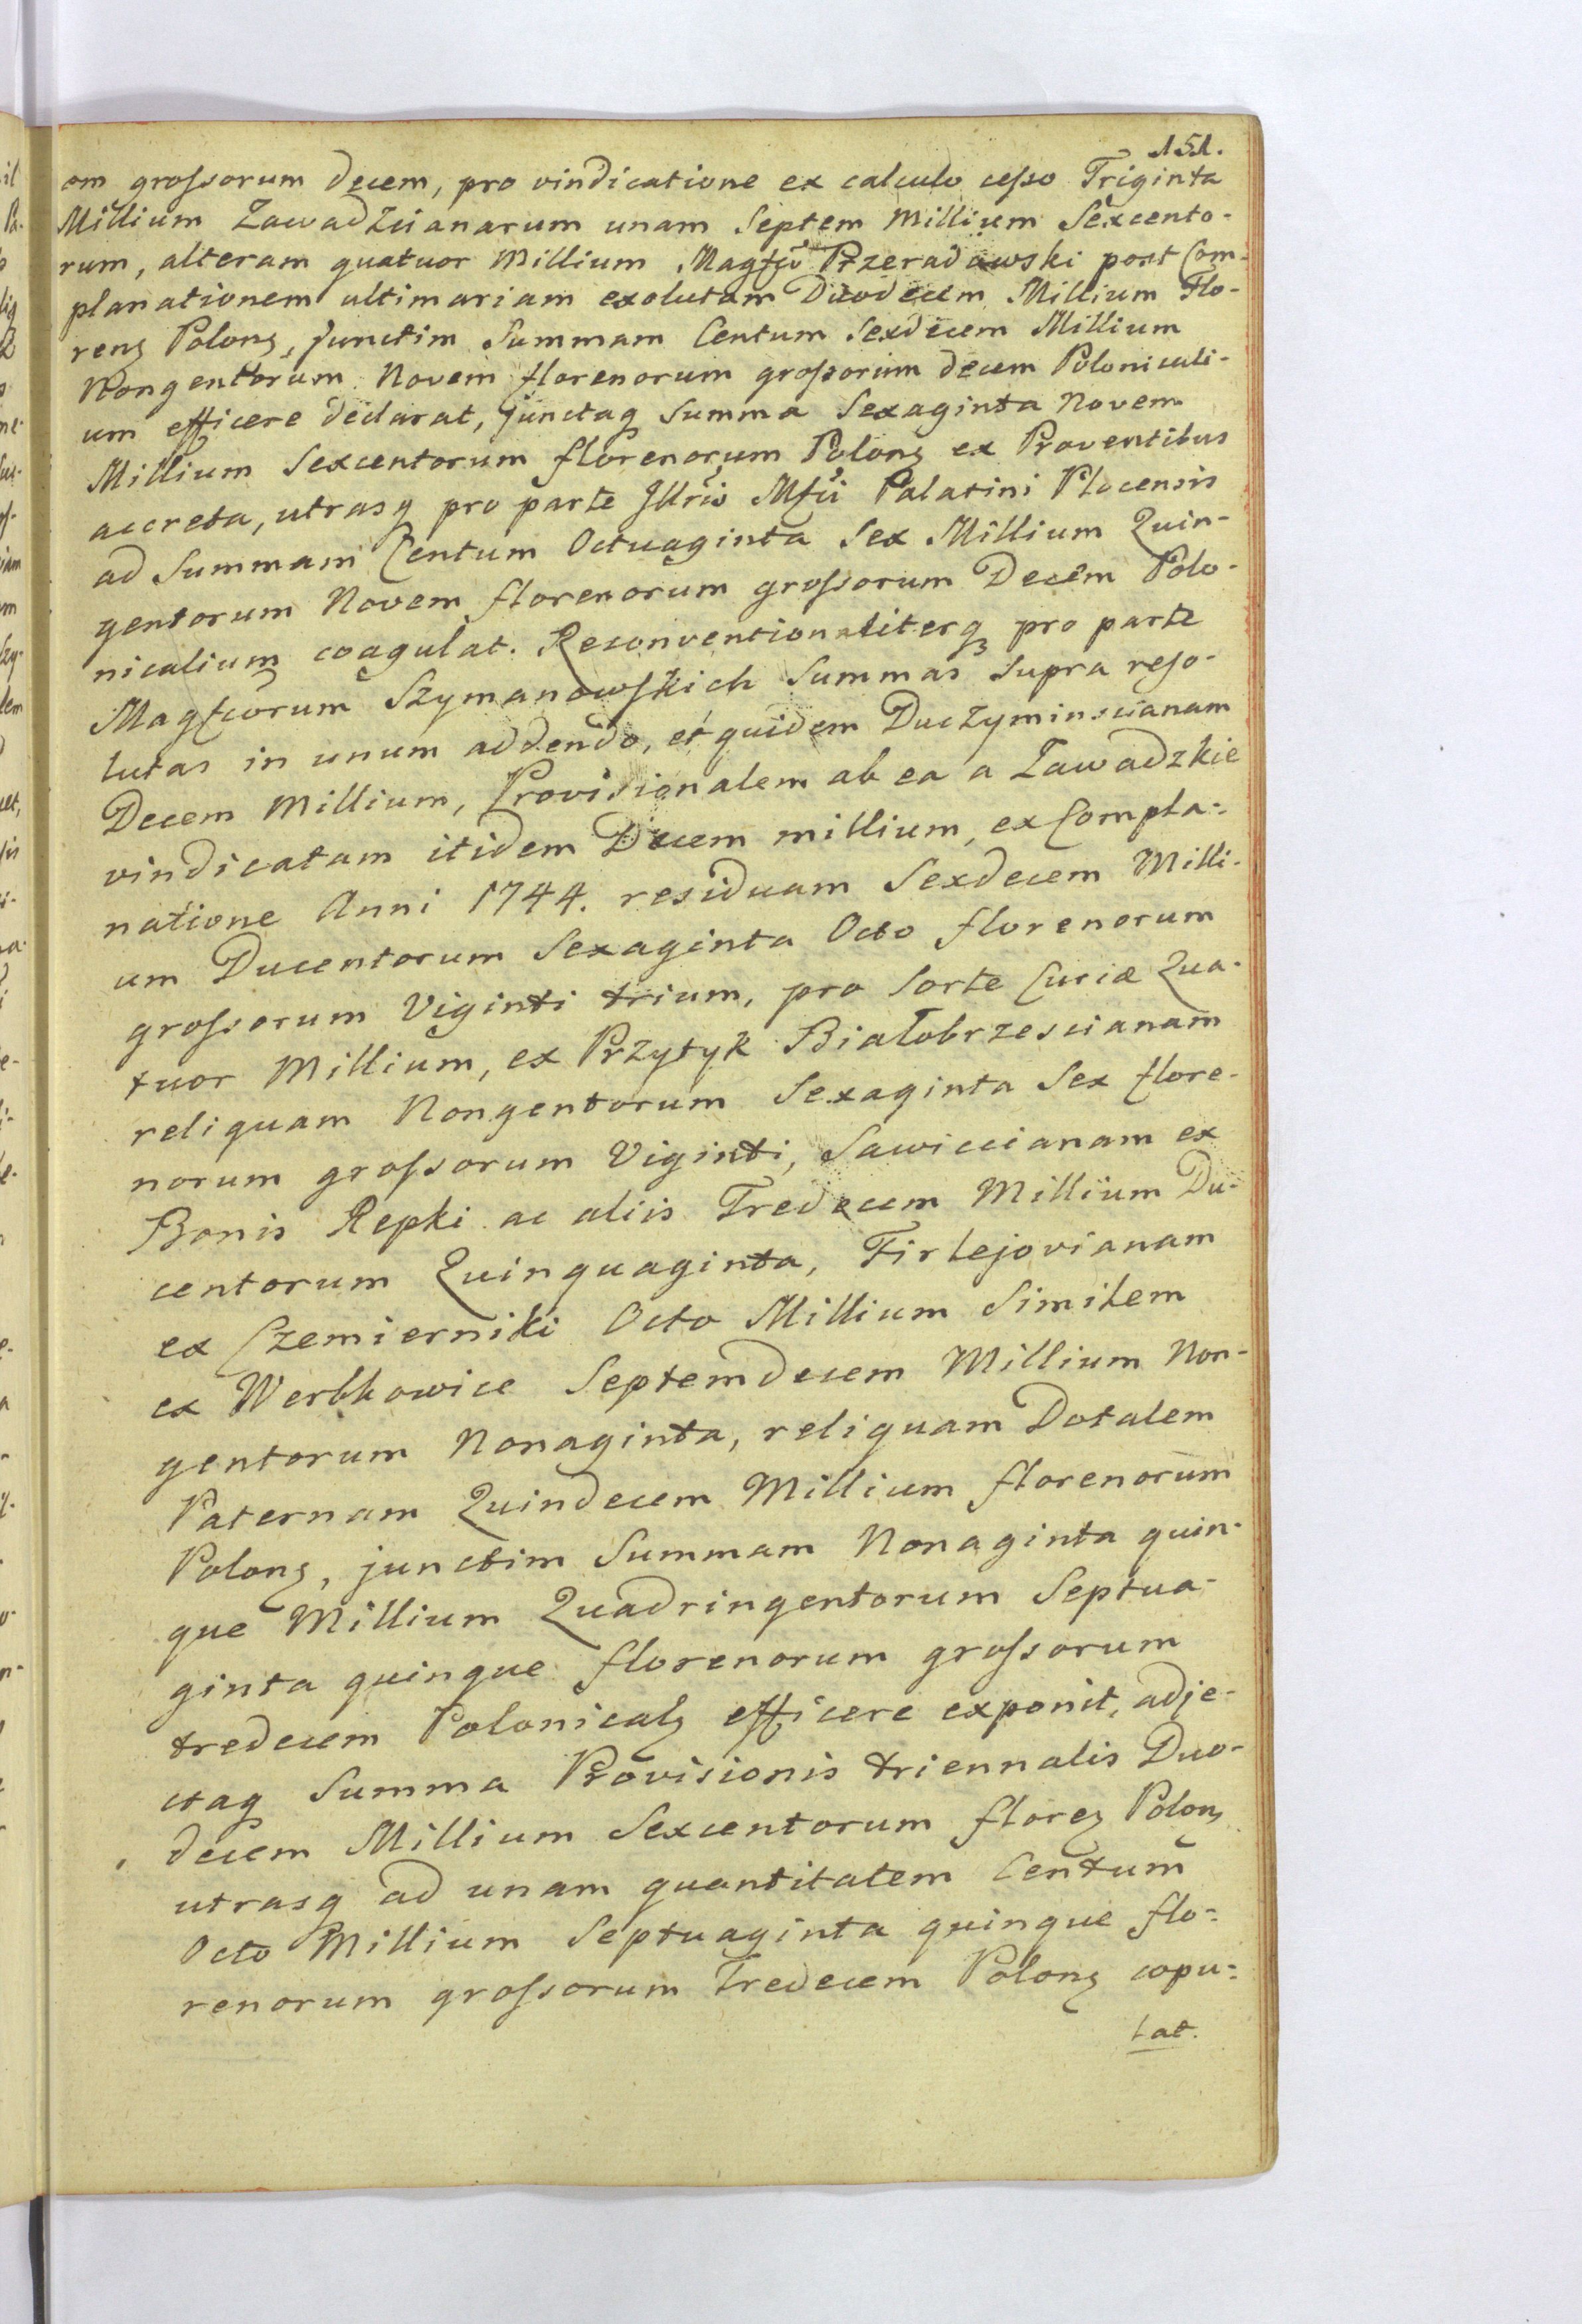 151.
om grossorum decem, pro vindicatione ex calculo cesso Triginta
Millium Zawadzcianarum unam Septem Millium Sexcento-
rum, alteram quatuor Millium Magfcũ Przeradowski post Com-
planationem ultimariam exolutam Duodecem Millium Flo-
renʒ Polonʒ, junctim Summam Centum Sexdecem Millium
Nongentorum Novem florenorum grossorum decem Polonicali-
um efficere declarat, junctaq Summa Sexaginta Novem
Millium Sexcentorum florenorum Polonʒ ex Proventibus
accreta, utrasq pro parte Illris Mfci Palatini Plocensis
ad Summam Centum Octuaginta Sex Millium Quin-
gentorum Novem florenorum grossorum Decem Polo-
nicalium coagulat. Reconventionaliterqʒ pro parte
Magfcorum Szymanowskich Summas supra reso-
lutas in unum addendo, et quidem Duczyminscianam
Decem Millium, Provisionalem ab ea a Zawadzkie
vindicatam itidem Decem millium, ex Compla-
natione Anni 1744. residuam Sexdecem Milli-
um Ducentorum Sexaginta Octo florenorum
grossorum Viginti trium, pro Sorte Curiæ Qua-
tuor Millium, ex Przytyk Białobrzescianam
reliquam Nongentorum Sexaginta Sex flore-
norum grossorum Viginti, Sawiccianam ex
Bonis Repki ac aliis Tredecem Millium Du-
centorum Quinquaginta, Firlejovianam
ex Czemierniki Octo Millium Similem
ex Werbkowice Septemdecem Millium Non-
gentorum Nonaginta, reliquam Dotalem
Paternam Quindecem Millium florenorum
Polonʒ, junctim Summam Nonaginta quin-
que Millium Quadringentorum Septua-
ginta quinque florenorum grossorum
tredecem Polonicalʒ efficere exponit, adje-
ctaq Summa Provisionis triennalis Duo-
decem Millium Sexcentorum florenʒ Polonʒ
utrasq ad unam quantitatem Centum
Octo Millium Septuaginta quinque flo-
renorum grossorum Tredecem Polonʒ copu-
lat.